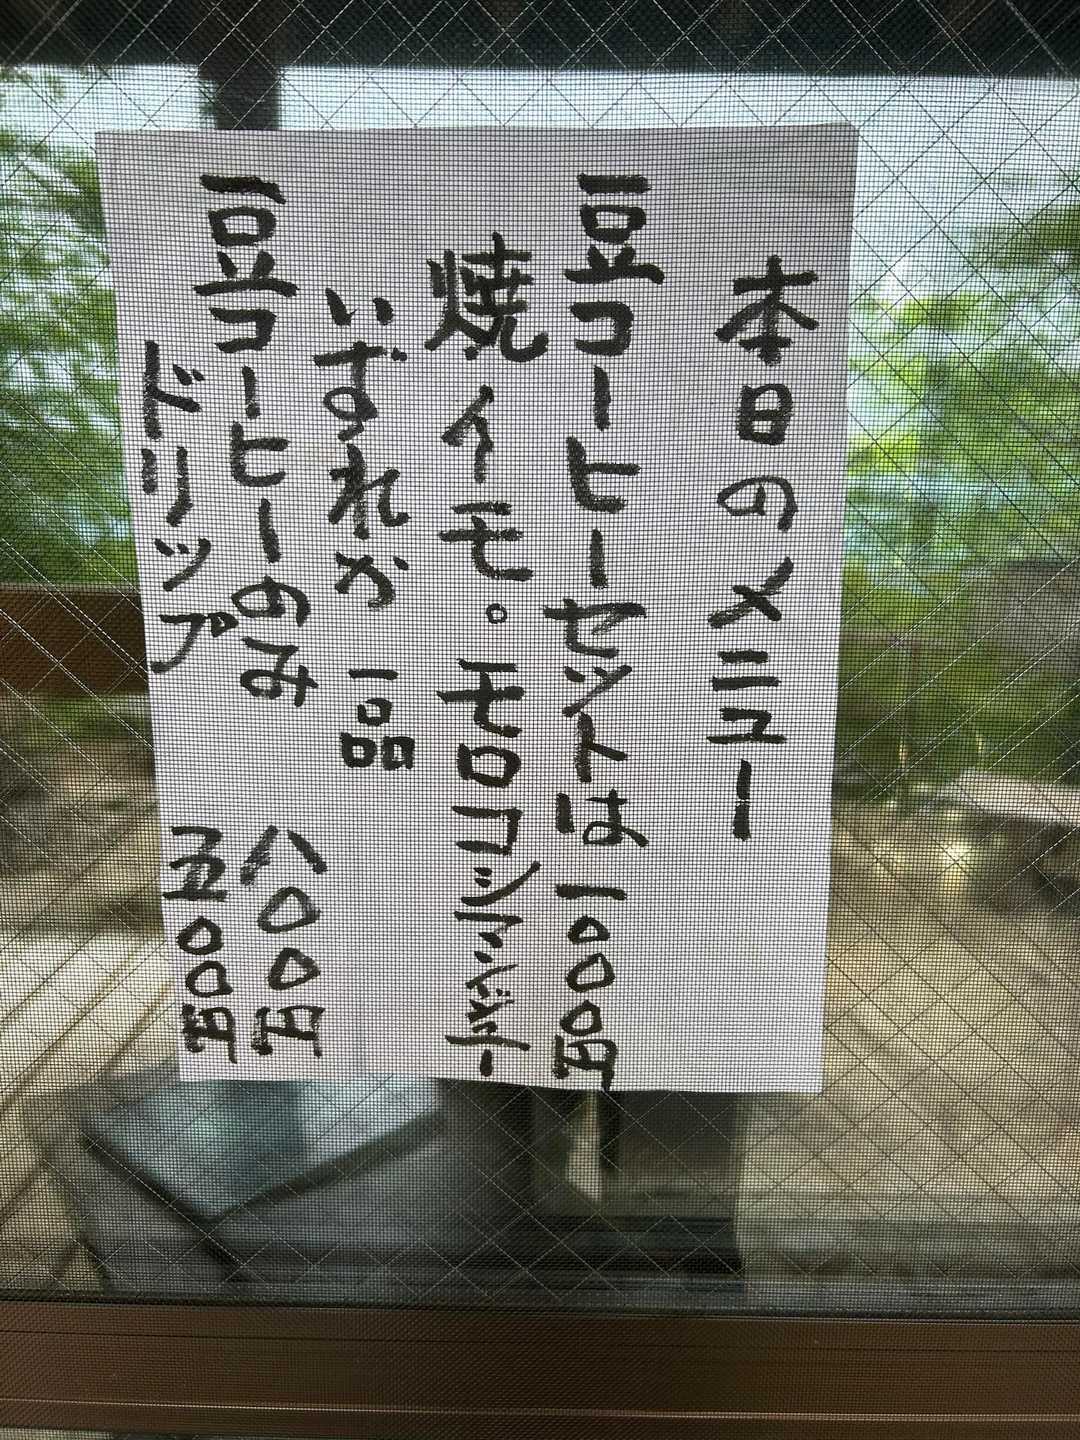 本日のメニュー
豆コーヒーセットは一〇〇〇円
焼イモ。モロコシ
いずれか一品
豆コーヒーのみ 八〇〇円
ドリップ 五〇〇円